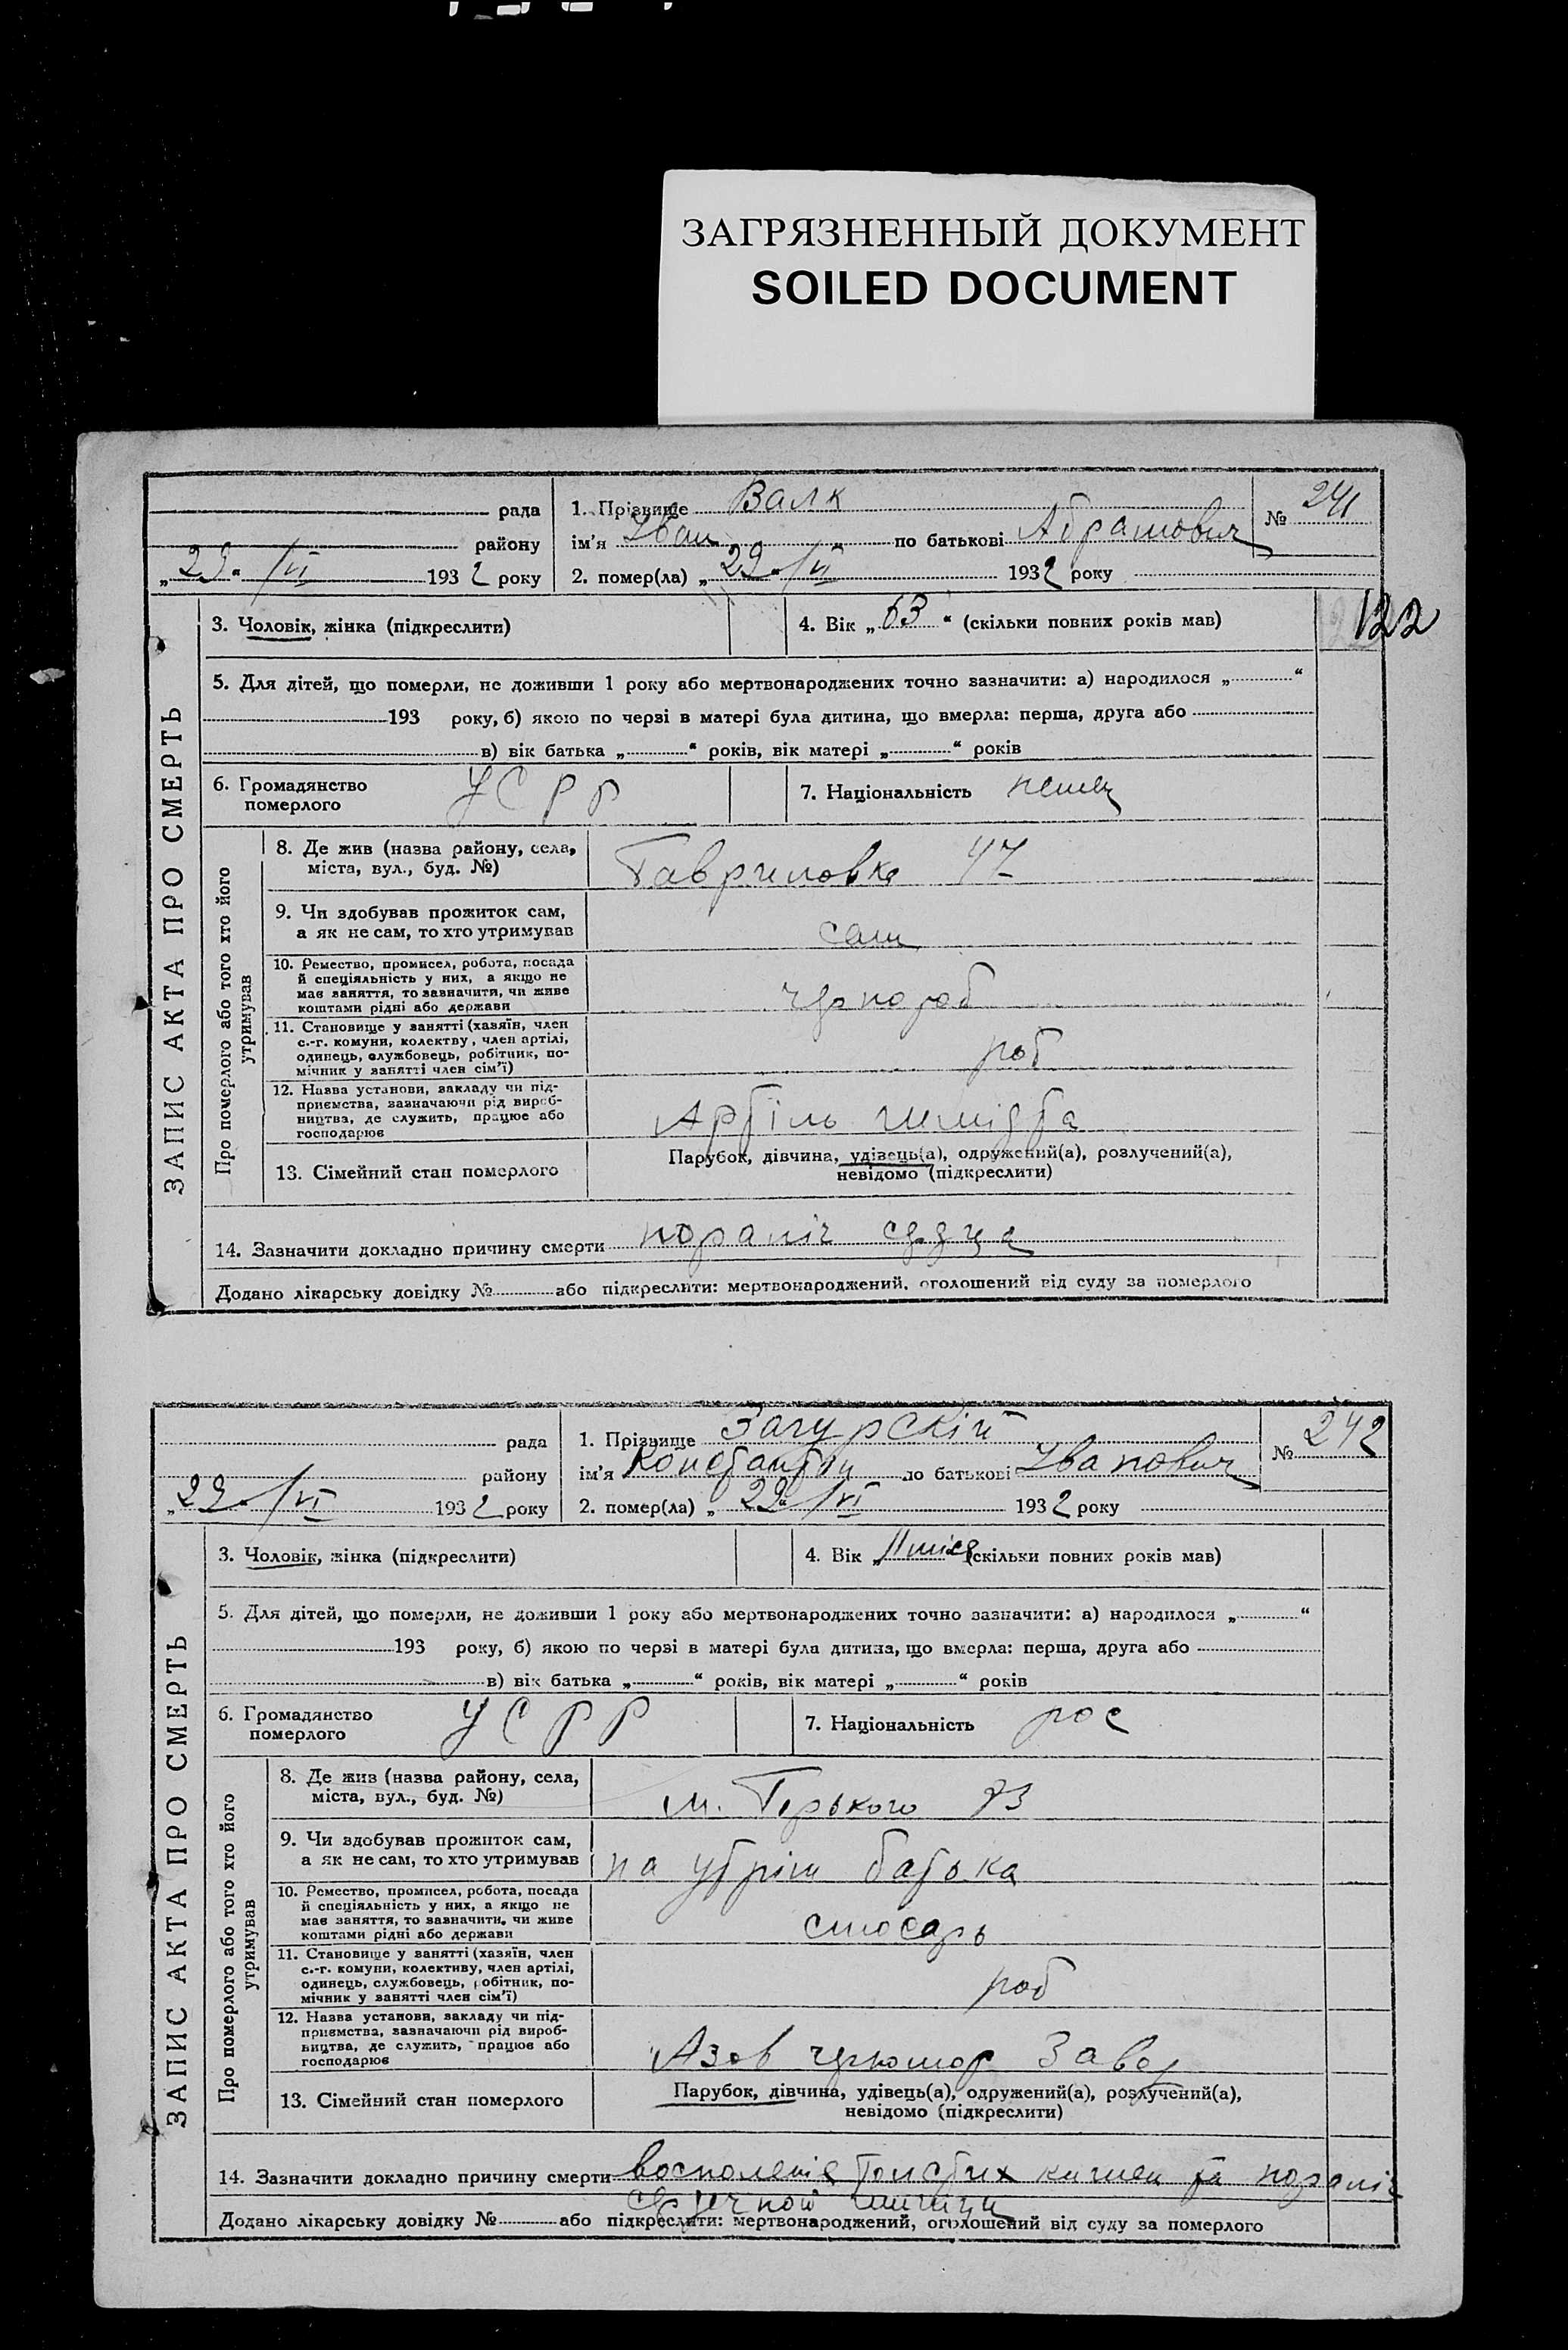 ЗАГРЯЗНЕННЫЙ ДОКУМЕНТ
SOILED DOCUMENT
ЗАПИС АКТА ПРО СМЕРТЬ
рада
району
„29“ /VI 1932 року
1. Прізвище Валк
ім’я Иван по батькові Абрамович
№ 241
2. помер(ла) „29“ /VI 1932 року
122
3. Чоловік, жінка (підкреслити)
4. Вік „63“ (скільки повних років мав)
5. Для дітей, що померли, не доживши 1 року або мертвонароджених точно зазначити: а) народилося „ “
193 року, б) якою по черзі в матері була дитина, що вмерла: перша, друга або
в) вік батька „ “ років, вік матері „ “ років
6. Громадянство
померлого
УСРР
7. Національність немец
Про померлого або того хто його
утримував
8. Де жив (назва району, села,
міста, вул., буд. №)
Гавриловка 47
9. Чи здобував прожиток сам,
а як не сам, то хто утримував
сам
10. Ремество, промисел, робота, посада
й спеціяльність у них, а якщо не
має заняття, то зазначити, чи живе
коштами рідні або держави
чернороб
11. Становище у занятті (хазяїн, член
с.-г. комуни, колектву, член артілі,
одинець, службовець, робітник, по-
мічник у занятті член сім’ї)
роб
12. Назва установи, закладу чи під-
приємства, зазначаючи рід вироб-
ництва, де служить, працює або
господарює
Артіль
13. Сімейний стан померлого
Парубок, дівчина, удівець(а), одружений(а), розлучений(а),
невідомо (підкреслити)
14. Зазначити докладно причину смерти пораліч сердца
Додано лікарську довідку № або підкреслити: мертвонароджений, оголошений від суду за померлого
ЗАПИС АКТА ПРО СМЕРТЬ
рада
району
„29“ /VI 1932 року
1. Прізвище Загурскій
ім’я Константин по батькові Иванович
№ 242
2. помер(ла) „29“ /VI 1932 року
3. Чоловік, жінка (підкреслити)
4. Вік „11 міся (скільки повних років мав)
5. Для дітей, що померли, не доживши 1 року або мертвонароджених точно зазначити: а) народилося „ “
193 року, б) якою по черзі в матері була дитина, що вмерла: перша, друга або
в) вік батька „ “ років, вік матері „ “ років
6. Громадянство
померлого
УСРР
7. Національність рос
Про померлого або того хто його
утримував
8. Де жив (назва району, села,
міста, вул., буд. №)
м. Горького 73
9. Чи здобував прожиток сам,
а як не сам, то хто утримував
на утрим батька
10. Ремество, промисел, робота, посада
й спеціяльність у них, а якщо не
має заняття, то зазначити, чи живе
коштами рідні або держави
слюсарь
11. Становище у занятті (хазяїн, член
с.-г. комуни, колективу, член артілі,
одинець, службовець, робітник, по-
мічник у занятті член сім’ї)
роб
12. Назва установи, закладу чи під-
приємства, зазначаючи рід вироб-
ництва, де служить, працює або
господарює
Азов черномор Завод
13. Сімейний стан померлого
Парубок, дівчина, удівець(а), одружений(а), розлучений(а),
невідомо (підкреслити)
14. Зазначити докладно причину смерти восполеніе толстих кишек та пораліч
сердечной мишци
Додано лікарську довідку № або підкреслити: мертвонароджений, оголошений від суду за померлого